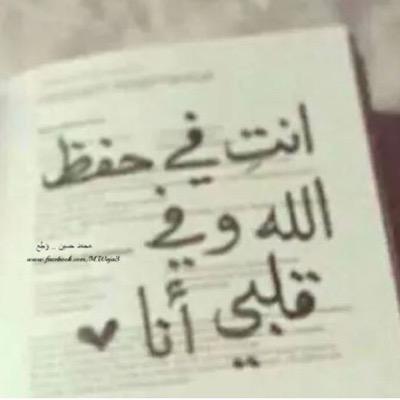 انتِ في حفظ
الله وفي
محمد حسين .. وجع
www.facebook.com/M.Waja3
قلبي أنا ♥